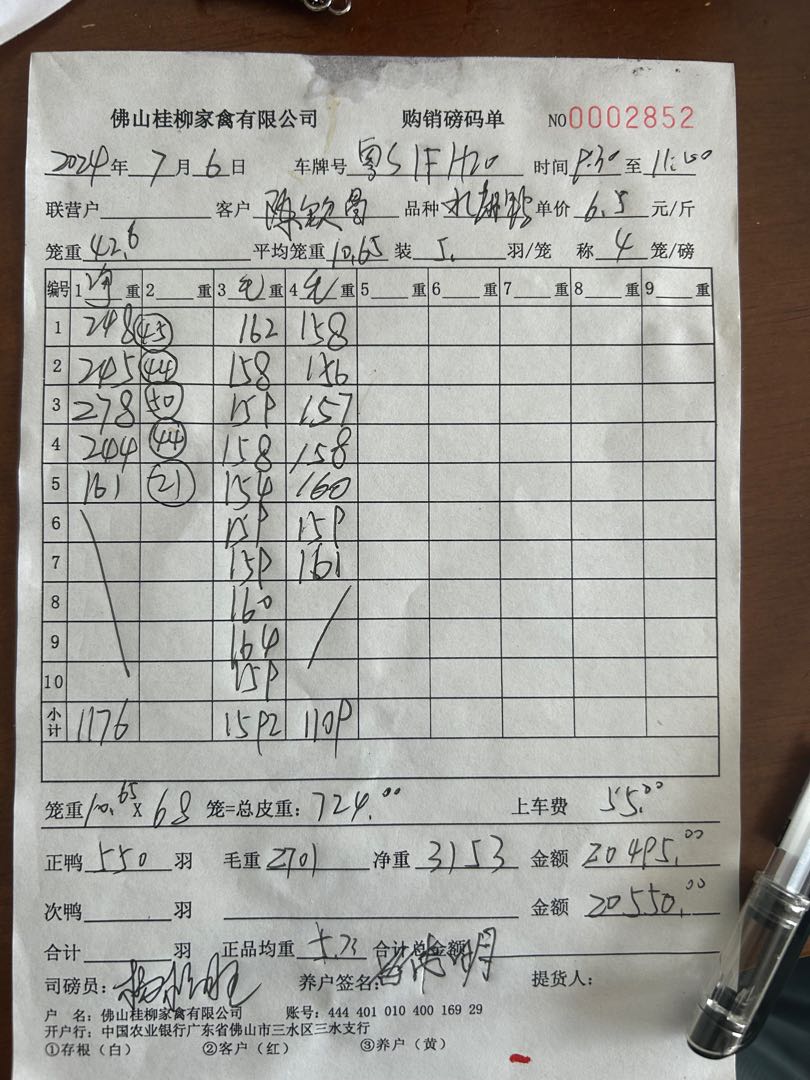 佛山桂柳家禽有限公司 购销磅码单 NO0002852
2024年 7月 6日 车牌号 粤S1FH20 时间 9:30 至 11:00
联营户 客户 陈 品种 单价 6.5 元/斤
笼重 42.6 平均笼重 10.65 装 5. 羽/笼 称 4 笼/磅
编号 1 净 重 2 重 3 毛 重 4 毛 重 5 重 6 重 7 重 8 重 9 重
1 248 45 162 158
2 245 44 158 156
3 278 50 159 157
4 244 44 158 158
5 161 21 154 160
6 159 159
7 159 161
8 160
9 164
10 159
小计 1176 1592 1109
笼重 10.65 X 68 笼=总皮重: 724.00 上车费 55.00
正鸭 550 羽 毛重 2701 净重 3153 金额 20495.00
次鸭 羽 金额 20550.00
合计 羽 正品均重 5.73 合计总金额
司磅员: 养户签名: 明 提货人:
户 名: 佛山桂柳家禽有限公司 账号: 444 401 010 400 169 29
开户行: 中国农业银行广东省佛山市三水区三水支行
①存根(白) ②客户(红) ③养户(黄)